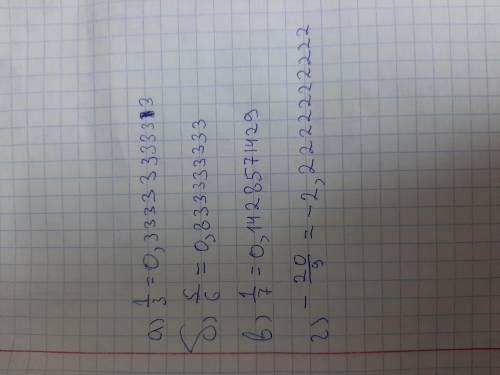 а) 1/3 = 0,3333333333
б) 5/6 = 0,8333333333
в) 1/7 = 0,1428571429
г) - 20/9 = -2,222222222222